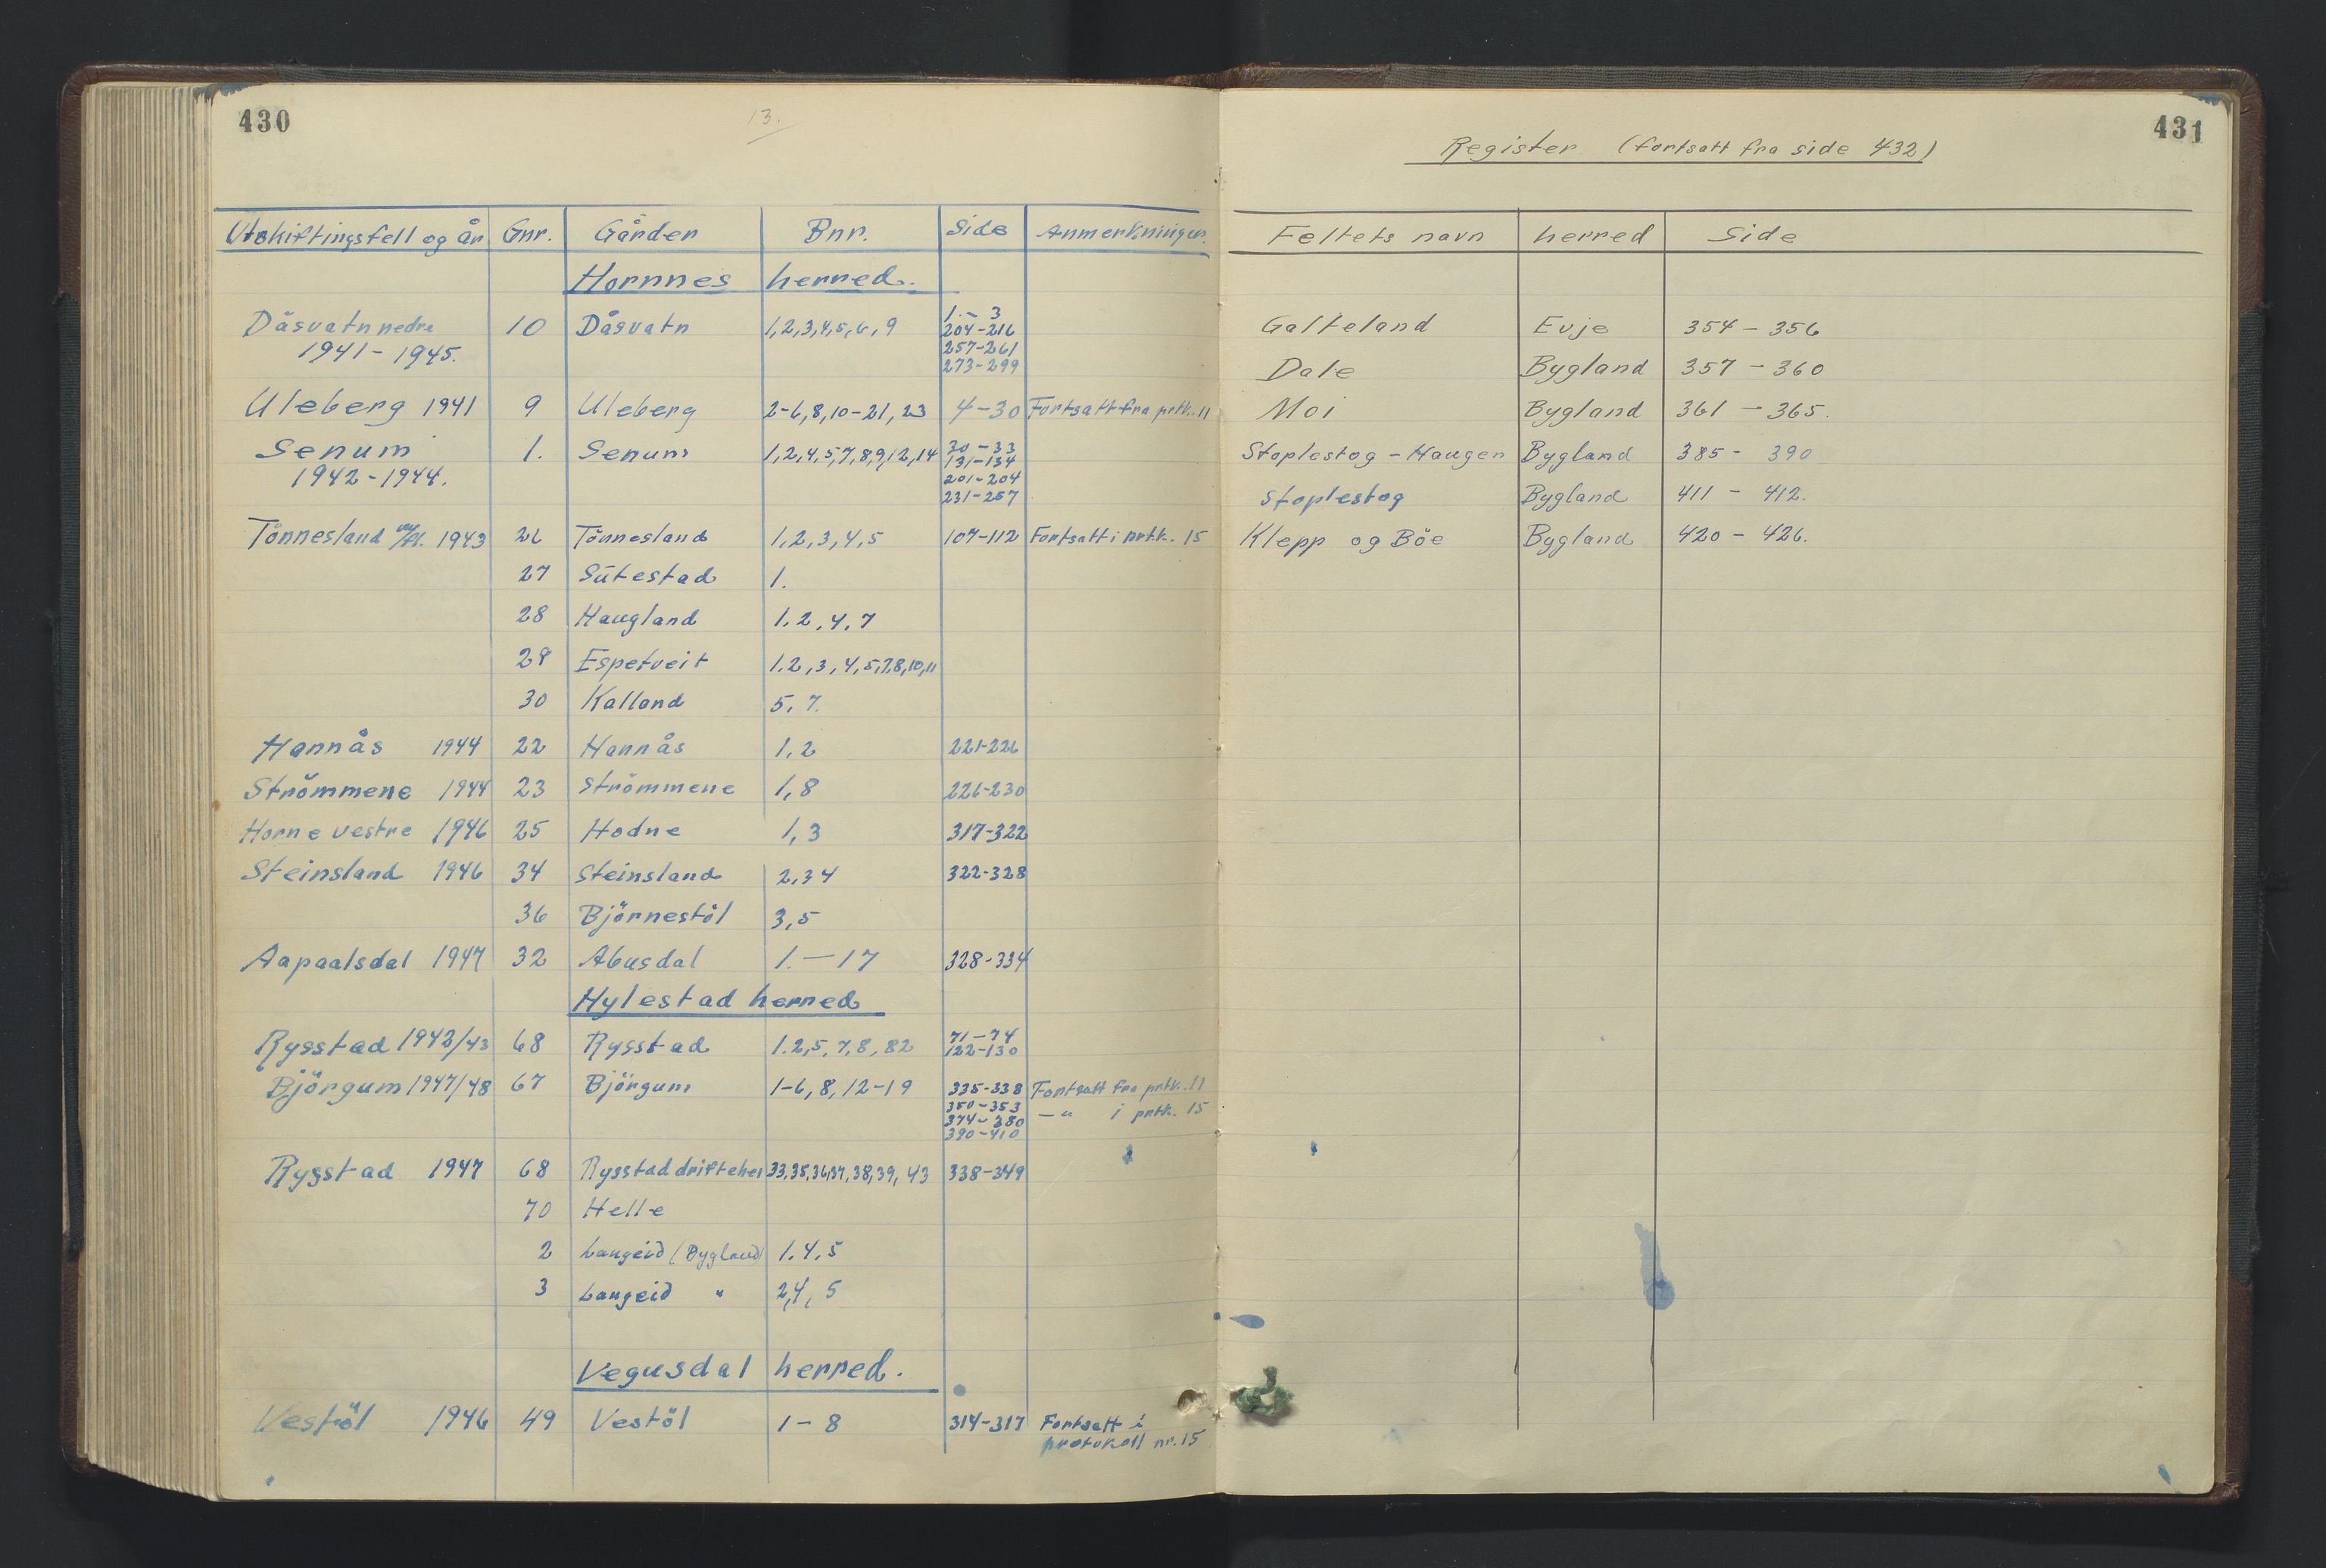 430
13.
Utskiftingsfell og år Gnr. Gården Bnr. Side Anmerkninger.
Hornnes herred.
Dåsvatn nedre 10 Dåsvatn 1,2,3,4,5,6,9 1.-3
1941-1945. 204-216
257-261
273-299
Uleberg 1941 9 Uleberg 2-6,8,10-21,23 4-30 Fortsatt fra prtk. 11
Senum 1. Senum 1,2,4,5,7,8,9,12,14 30-33
1942-1944. 131-134
201-204
231-257
Tönnesland 1943 26 Tönnesland 1,2,3,4,5 107-112 Fortsatt i prtk. 15
27 Sütestad 1.
28 Haugland 1,2,4,7
29 Espetveit 1,2,3,4,5,7,8,10,11
30 Kalland 5,7.
Hannås 1944 22 Hannås 1,2 221-226
Strömmene 1944 23 Strömmene 1,8 226-230
Horne vestre 1946 25 Hodne 1,3 317-322
Steinsland 1946 34 Steinsland 2,34 322-328
36 Björnestöl 3,5
Aapaalsdal 1947 32 Abusdal 1.-17 328-334
Hylestad herred
Rysstad 1942/43 68 Rysstad 1.2,5,7,8,82 71-74
122-130
Björgum 1947/48 67 Björgum 1-6,8,12-19 335-338 Fortsatt fra prtk. 11
350-353 -"- i prtk. 15
374-380
390-410
Rysstad 1947 68 Rysstad driftehei 33,35,36,37,38,39,43 338-349
70 Helle
2 Langeid (Bygland) 1.4,5
3 Langeid " 2,4,5
Vegusdal herred.
Vestöl 1946 49 Vestöl 1-8 314-317 Fortsatt i
protokoll nr. 15
431
Register (fortsatt fra side 432)
Feltets navn herred Side
Galteland Evje 354-356
Dale Bygland 357-360
Moi Bygland 361-365.
Stoplestog-Haugen Bygland 385-390
Stoplestog Bygland 411-412.
Klepp og Böe Bygland 420-426.